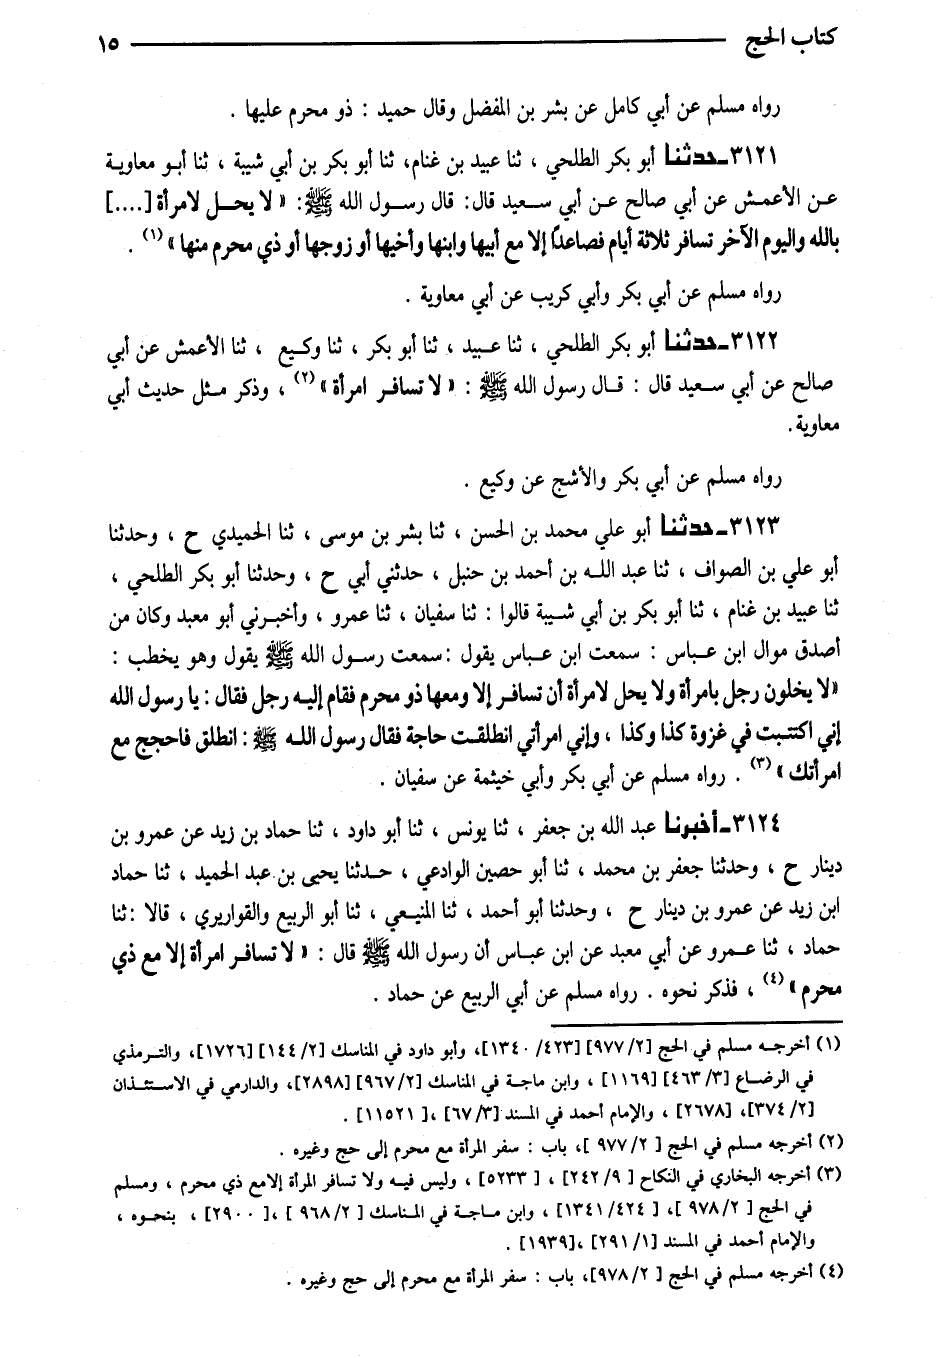 كتاب الحج ١٥
رواه مسلم عن أبي كامل عن بشر بن المفضل وقال حميد : ذو محرم عليها .
٣١٢١ـ حدثنا أبو بكر الطلحي ، ثنا عبيد بن غنام، ثنا أبو بكر بن أبي شيبة ، ثنا أبـو معاويـة
عـن الأعمـش عن أبي صالح عـن أبي سـعيد قال: قال رسـول الله ﷺ: « لا يحـل لامرأة [....]
بالله واليوم الآخر تسافر ثلاثة أيام فصاعدًا إلا مع أبيها وابنها وأخيها أو زوجها أو ذي محرم منها» (١) .
رواه مسلم عن أبي بكر وأبي كريب عن أبي معاوية .
٣١٢٢ـ حدثنـا أبو بكر الطلحي ، ثنا عـبيد ، ثنا أبو بكر ، ثنا وكـيع ، ثنا الأعمش عن أبي
صالح عن أبي سـعيد قال : قـال رسول الله ﷺ : « لا تسافـر امرأة» (٢) ، وذكر مـثل حديث أبي
معاوية.
رواه مسلم عن أبي بكر والأشج عن وكيع .
٣١٢٣ـ حدثنـا أبو علي محمد بن الحسن ، ثنا بشر بن موسى ، ثنا الحميدي ح ، وحدثنا
أبو علي بن الصواف ، ثنا عبد اللـه بن أحمد بن حنبل ، حدثني أبي ح ، وحدثنا أبو بكر الطلحي ،
ثنا عبيد بن غنام ، ثنا أبو بكر بن أبي شـيبة قالوا : ثنا سفيان ، ثنا عمرو ، وأخبـرني أبو معبد وكان من
أصدق موال ابن عـباس : سمعت ابن عـباس يقول :سمعت رسـول الله ﷺ يقول وهو يخطب :
«لا يخلون رجل بامرأة ولا يحل لامرأة أن تسافـر إلا ومعها ذو محرم فقام إليـه رجل فقال : يا رسول الله
إني اكتتبت في غزوة كذا وكذا ، وإني امرأتي انطلقـت حاجة فقال رسول اللـه ﷺ : انطلق فاحجج مع
امرأتك» (٣) . رواه مسلم عن أبي بكر وأبي خيثمة عن سفيان .
٣١٢٤ـ أخبرنـا عبد الله بن جعفر ، ثنا يونس ، ثنا أبو داود ، ثنا حماد بن زيد عن عمرو بن
دينار ح ، وحدثنا جعفر بن محمد ، ثنا أبو حصين الوادعي ، حـدثنا يحيى بن عبد الحميد ، ثنا حماد
ابن زيد عن عمرو بن دينار ح ، وحدثنا أبو أحمد ، ثنا المنيـعي ، ثنا أبو الربيع والقواريري ، قالا :ثنا
حماد ، ثنا عـمرو عن أبي معبد عن ابن عبـاس أن رسول الله ﷺ قال : « لا تسافـر امرأة إلا مع ذي
محرم» (٤) ، فذكر نحوه . رواه مسلم عن أبي الربيع عن حماد .
(١) أخرجـه مسلم في الحج [٩٧٧/٢] [١٣٤٠/٤٢٣]، وأبو داود في المناسك [١٤٤/٢] [١٧٢٦]، والتـرمذي
في الرضـاع [٤٦٣/٣] [١١٦٩] ، وابن ماجـة في المناسك [٩٦٧/٢] [٢٨٩٨]، والدارمي في الاسـتئـذان
[٣٧٤/٢]، [٢٦٧٨] ، والإمام أحمد في المسند [٦٧/٣] ،[ ١١٥٢١] .
(٢) أخرجه مسلم في الحج [ ٩٧٧/٢ ]، باب : سفر المرأة مع محرم إلى حج وغيره .
(٣) أخرجه البخاري في النكاح [ ٢٤٢/٩] ، [ ٥٢٣٣] ، وليس فيه ولا تسافر المرأة إلامع ذي محرم ، ومسلم
في الحج [ ٩٧٨/٢ ]، [ ١٣٤١/٤٢٤] ، وابن مـاجـة في المـناسك [ ٩٦٨/٢ ] ،[ ٢٩٠٠] ، بنحـوه ،
والإمام أحمد في المسند [٢٩١/١] ،[١٩٣٩] .
(٤) أخرجه مسلم في الحج [ ٩٧٨/٢]، باب : سفر المرأة مع محرم إلى حج وغيره .